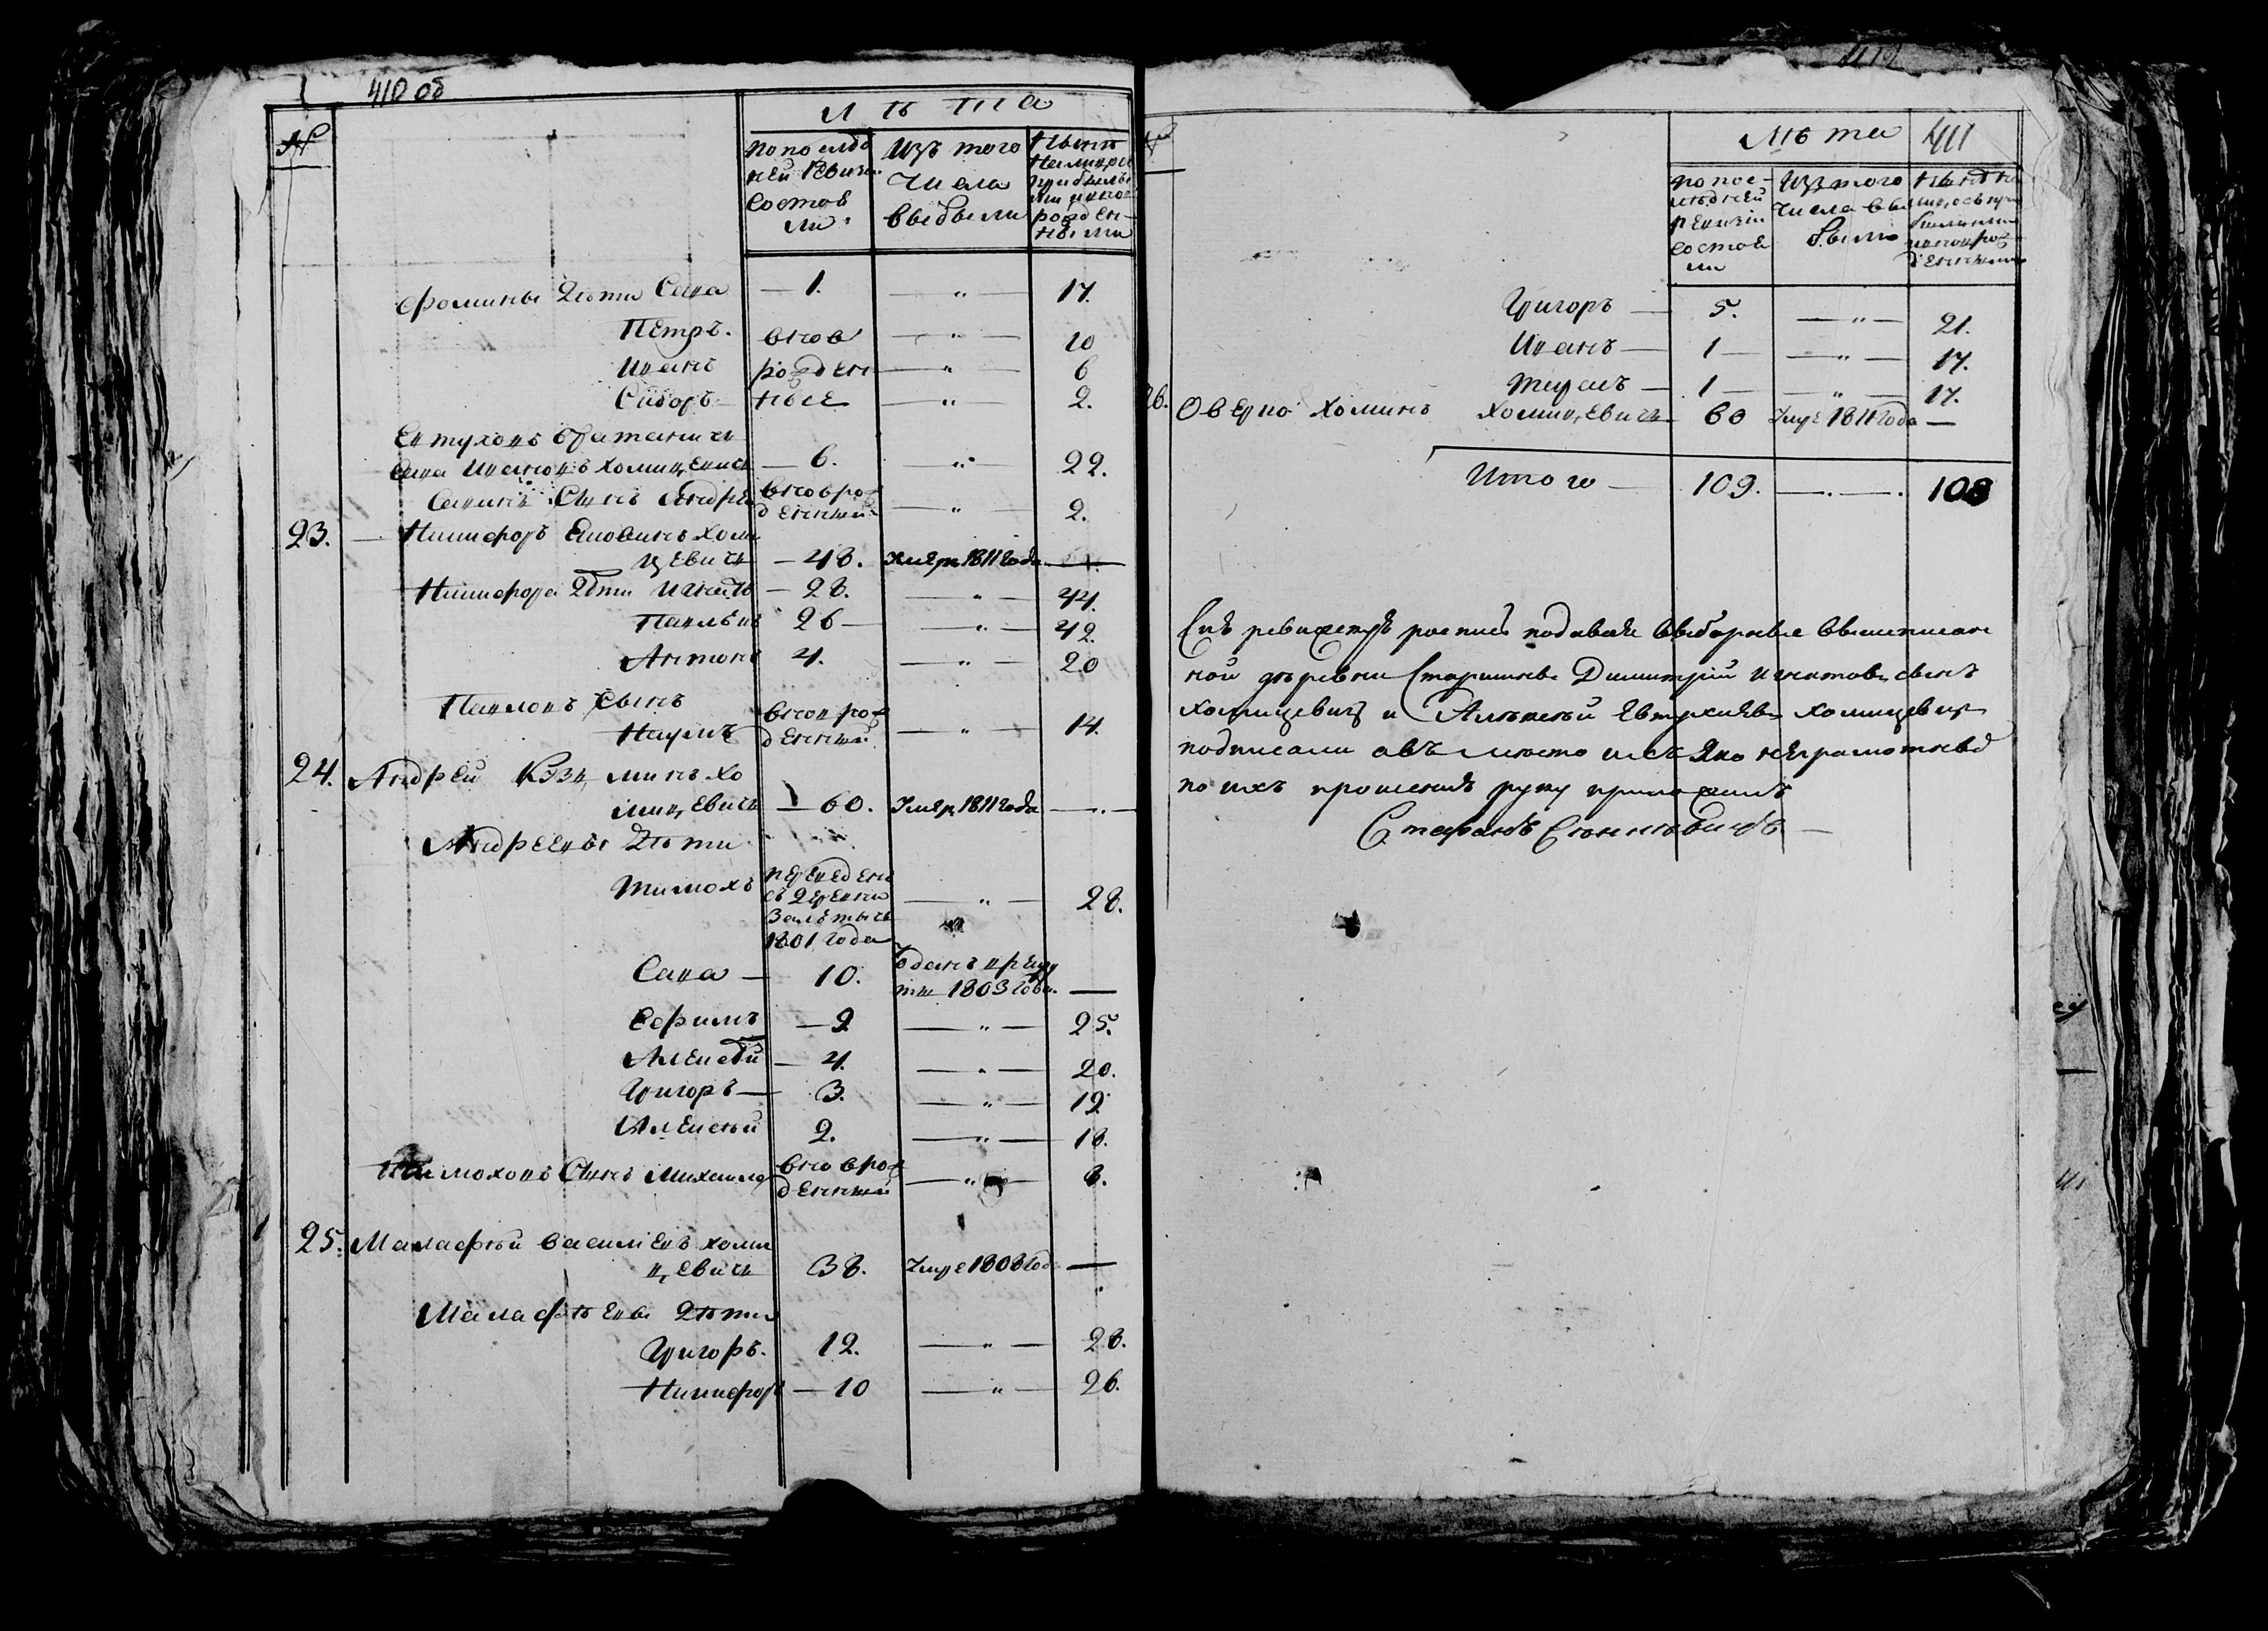 410 об
№
Лѣта
по последней ревизіи состояли
Изъ того числа выбыли
Нынѣ на лицо съ прибылыми и новорожденными
Фомины дѣти Сава — 1. — " — 17.
Петръ. вново — " — 10
Иванъ рожден — " — 6
Сидоръ ные — " — 2.
Евтуховъ братаничъ
Сава Ивановъ Хомицевичъ — 6. — " — 22.
Савинъ Сынъ Андрей вноврожденный — " — 2.
23. — Никифоръ Хоми
цевичъ — 48. Умеръ 1811 года —
Никифора дѣти Игнатъ — 28. — " — 44.
26 — — " — 42.
Антонъ 4. — " — 20
Павловъ сынъ
Наумъ вноврожденный — " — 14.
24. Андрей Кузминъ Хо
мицевичъ — 60. Умеръ 1811 года — " —
Андреевы дѣти
Тимохъ переведенъ съ деревни 1801 года — " — 28.
Сава — 10. Отданъ врекруты 1803 года. —
Ефимъ — 9 — " — 25.
Алексѣй — 4. — " — 20.
Григоръ — 3. — " — 19.
Алексѣй 2. — " — 18.
Тимоховъ Сынъ Михаила вноврожденный — " — 8.
25. Малафѣй Василіевъ Хоми
цевичъ 38. Умре 1808 год —
Малафѣевы дѣти
Григоръ. 12. — " — 28.
Никифоръ — 10 — " — 26.
№
Лѣта 411
по последней ревизіи состояли
Изъ того числа выбыли
Нынѣ на лицо съ прибылыми и новорожденными
Григоръ — 5. — " — 21.
Иванъ — 1 — — " — 17.
Тарасъ — 1 — — " — 17.
26. Хоминъ Хомицевичъ 60 Умре 1811 года —
Итого — 109. — . — . 108
Сию ревизскую роспись подавали выборные вышеписан
ной деревни Старшины Димитрій Игнатовъ сынъ
Хомицевичъ и Алексѣй Евтухіевъ Хомицевичъ
подписали авъ место ихъ яко неграмотныхъ
по ихъ прошенію руку приложилъ
Стефанъ